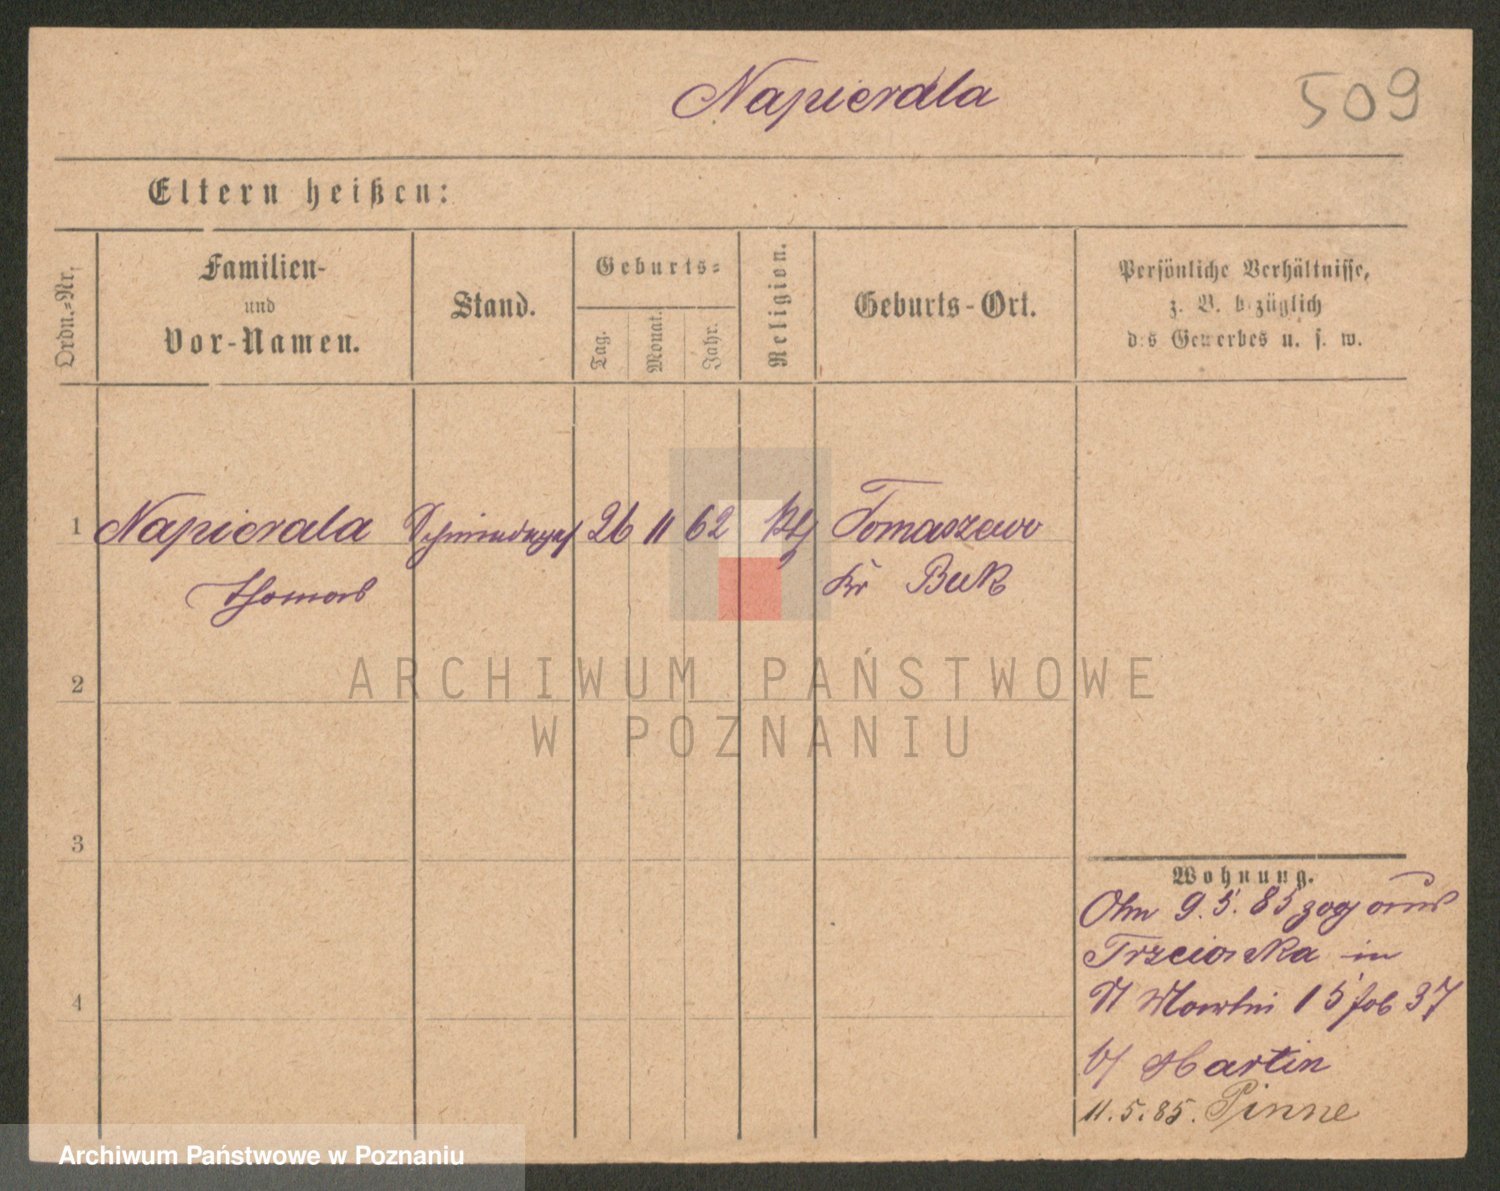 Napierala
509
Eltern heißen:
Ordn.-Nr.
Familien-
und
Vor-Namen.
Stand.
Geburts-
Tag.
Monat.
Jahr.
Religion.
Geburts-Ort.
Persönliche Verhältnisse,
z. B. bezüglich
des Gewerbes u. s. w.
1 Napierala 26 11 62 Tomaszewo
Thomas Kr Buk
2
3
4
ARCHIWUM PAŃSTWOWE
W POZNANIU
Wohnung.
Am 9.5.85 zog aus
in
St Martin 15 37
b/ Martin
11.5.85. Pinne
Archiwum Państwowe w Poznaniu